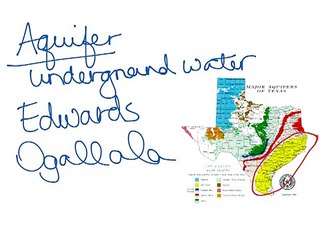 Aquifer
undergneund water
Edwards
Ogallala
MAJOR AQUIFERS
OF TEXAS